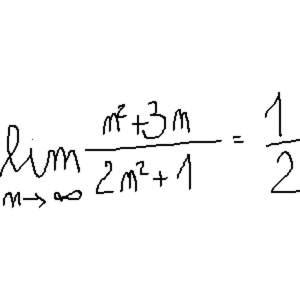 lim_{n→∞} \frac{n²+3n}{2n²+1} = \frac{1}{2}